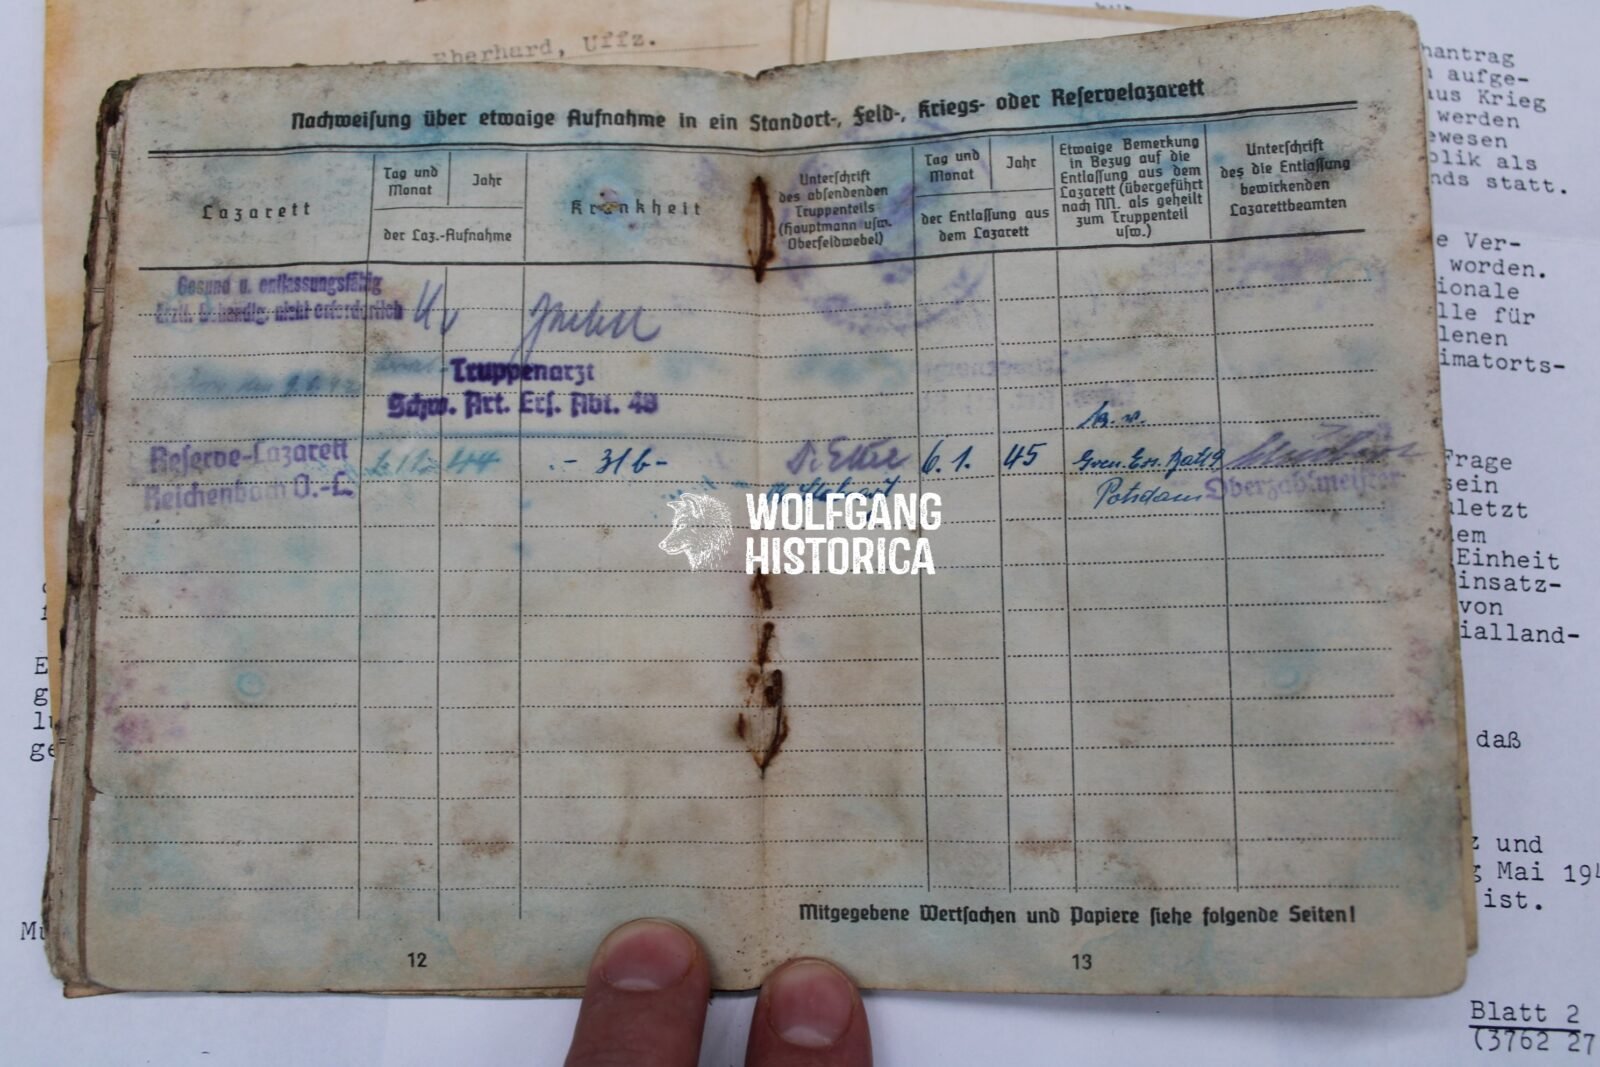 Eberhard, Uffz.
Nachweisung über etwaige Aufnahme in ein Standort-, Feld-, Kriegs- oder Reservelazarett
Lazarett
Tag und
Monat
Jahr
der Laz.-Aufnahme
Krankheit
Unterschrift
des absendenden
Truppenteils
(Hauptmann usw.
Oberfeldwebel)
Tag und
Monat
Jahr
der Entlassung aus
dem Lazarett
Etwaige Bemerkung
in Bezug auf die
Entlassung aus dem
Lazarett (übergeführt
nach NN. als geheilt
zum Truppenteil
usw.)
Unterschrift
des die Entlassung
bewirkenden
Lazarettbeamten
Gesund u. entlassungsfähig
ärztl. Behandlg. nicht erforderlich
Truppenarzt
Schw. Art. Ers. Abt. 48
Reserve-Lazarett
Reichenbach O.-L.
44
- 31b -
6. 1.
45
k.v.
Gren. Ers. Batl 9
Potsdam
Oberzahlmeister
WOLFGANG
HISTORICA
Mitgegebene Wertsachen und Papiere siehe folgende Seiten!
12
13
hantrag
aufge-
aus Krieg
werden
ewesen
blik als
nds statt.
e Ver-
worden.
ionale
lle für
lenen
imatorts-
Frage
sein
uletzt
em
Einheit
insatz-
von
ialland-
daß
z und
g Mai 194
ist.
Blatt 2
(3762 27